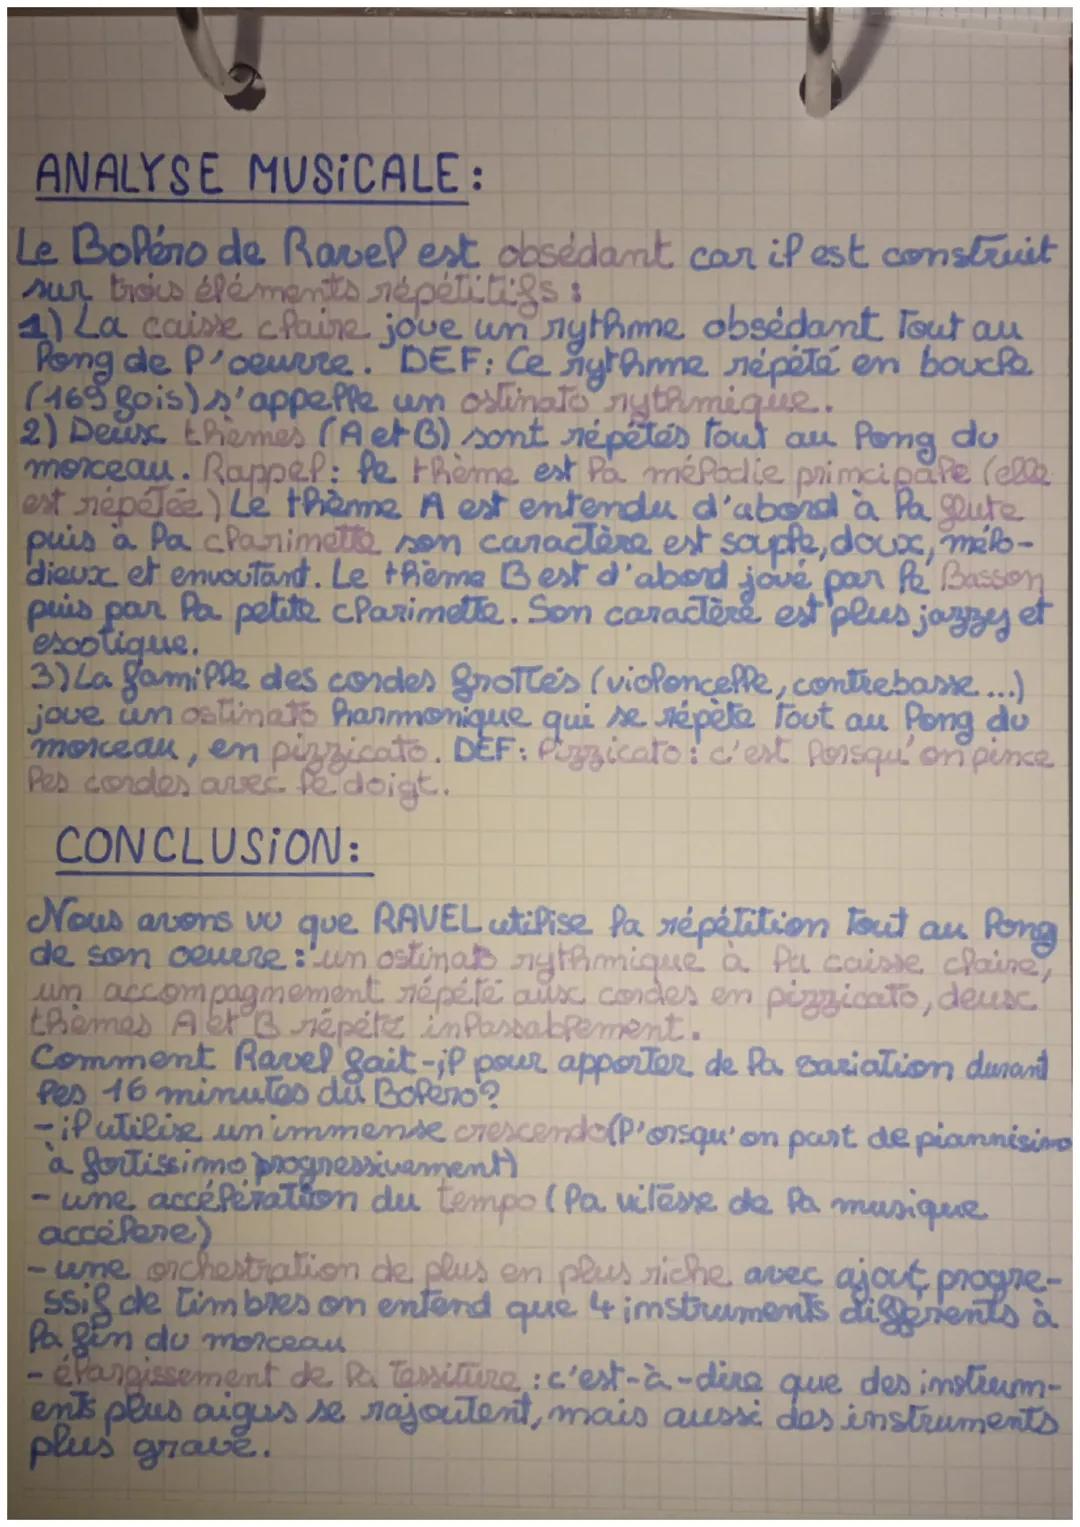 ANALYSE MUSiCALE:
Le Boléro de Ravel est obsédant car il est construit
sur trois éléments répétitifs :
1) La caisse claire joue un rythme obsédant Tout au
long de l'oeuvre. DEF: Ce rythme répété en boucle
(169 fois) s'appelle un ostinato rythmique.
2) Deux thèmes (A et B) sont répétés tout au long du
morceau. Rappel: le thème est la mélodie principale (elle
est répétée) Le thème A est entendu d'abord à la flute
puis à la clarinette son caractère est souple, doux, mélo-
dieux et envoutant. Le thème B est d'abord joué par le Basson
puis par la petite clarinette. Son caractère est plus jazzy et
exotique.
3) La famille des cordes frottés (violoncelle, contrebasse...)
joue un ostinato harmonique qui se répète Tout au long du
morceau, en pizzicato. DEF: Pizzicato : c'est lorsqu'on pince
les cordes avec le doigt.
CONCLUSiON:
Nous avons vu que RAVEL utilise la répétition Tout au long
de son oeuvre : un ostinato rythmique à la caisse claire,
un accompagnement répété aux cordes en pizzicato, deux
thèmes A et B répété inlassablement.
Comment Ravel fait-il pour apporter de la variation durant
les 16 minutes du Bolero?
- il utilise un immense crescendo (l'orsqu'on part de piannisimo
à fortissimo progressivement)
- une accélération du tempo (la vitesse de la musique
accélere)
- une orchestration de plus en plus riche avec ajout progre-
ssif de timbres on entend que 4 instruments differents à
la fin du morceau
- élargissement de la Tessiture : c'est-à-dire que des instrum-
ents plus aigus se rajoutent, mais aussi des instruments
plus grave.